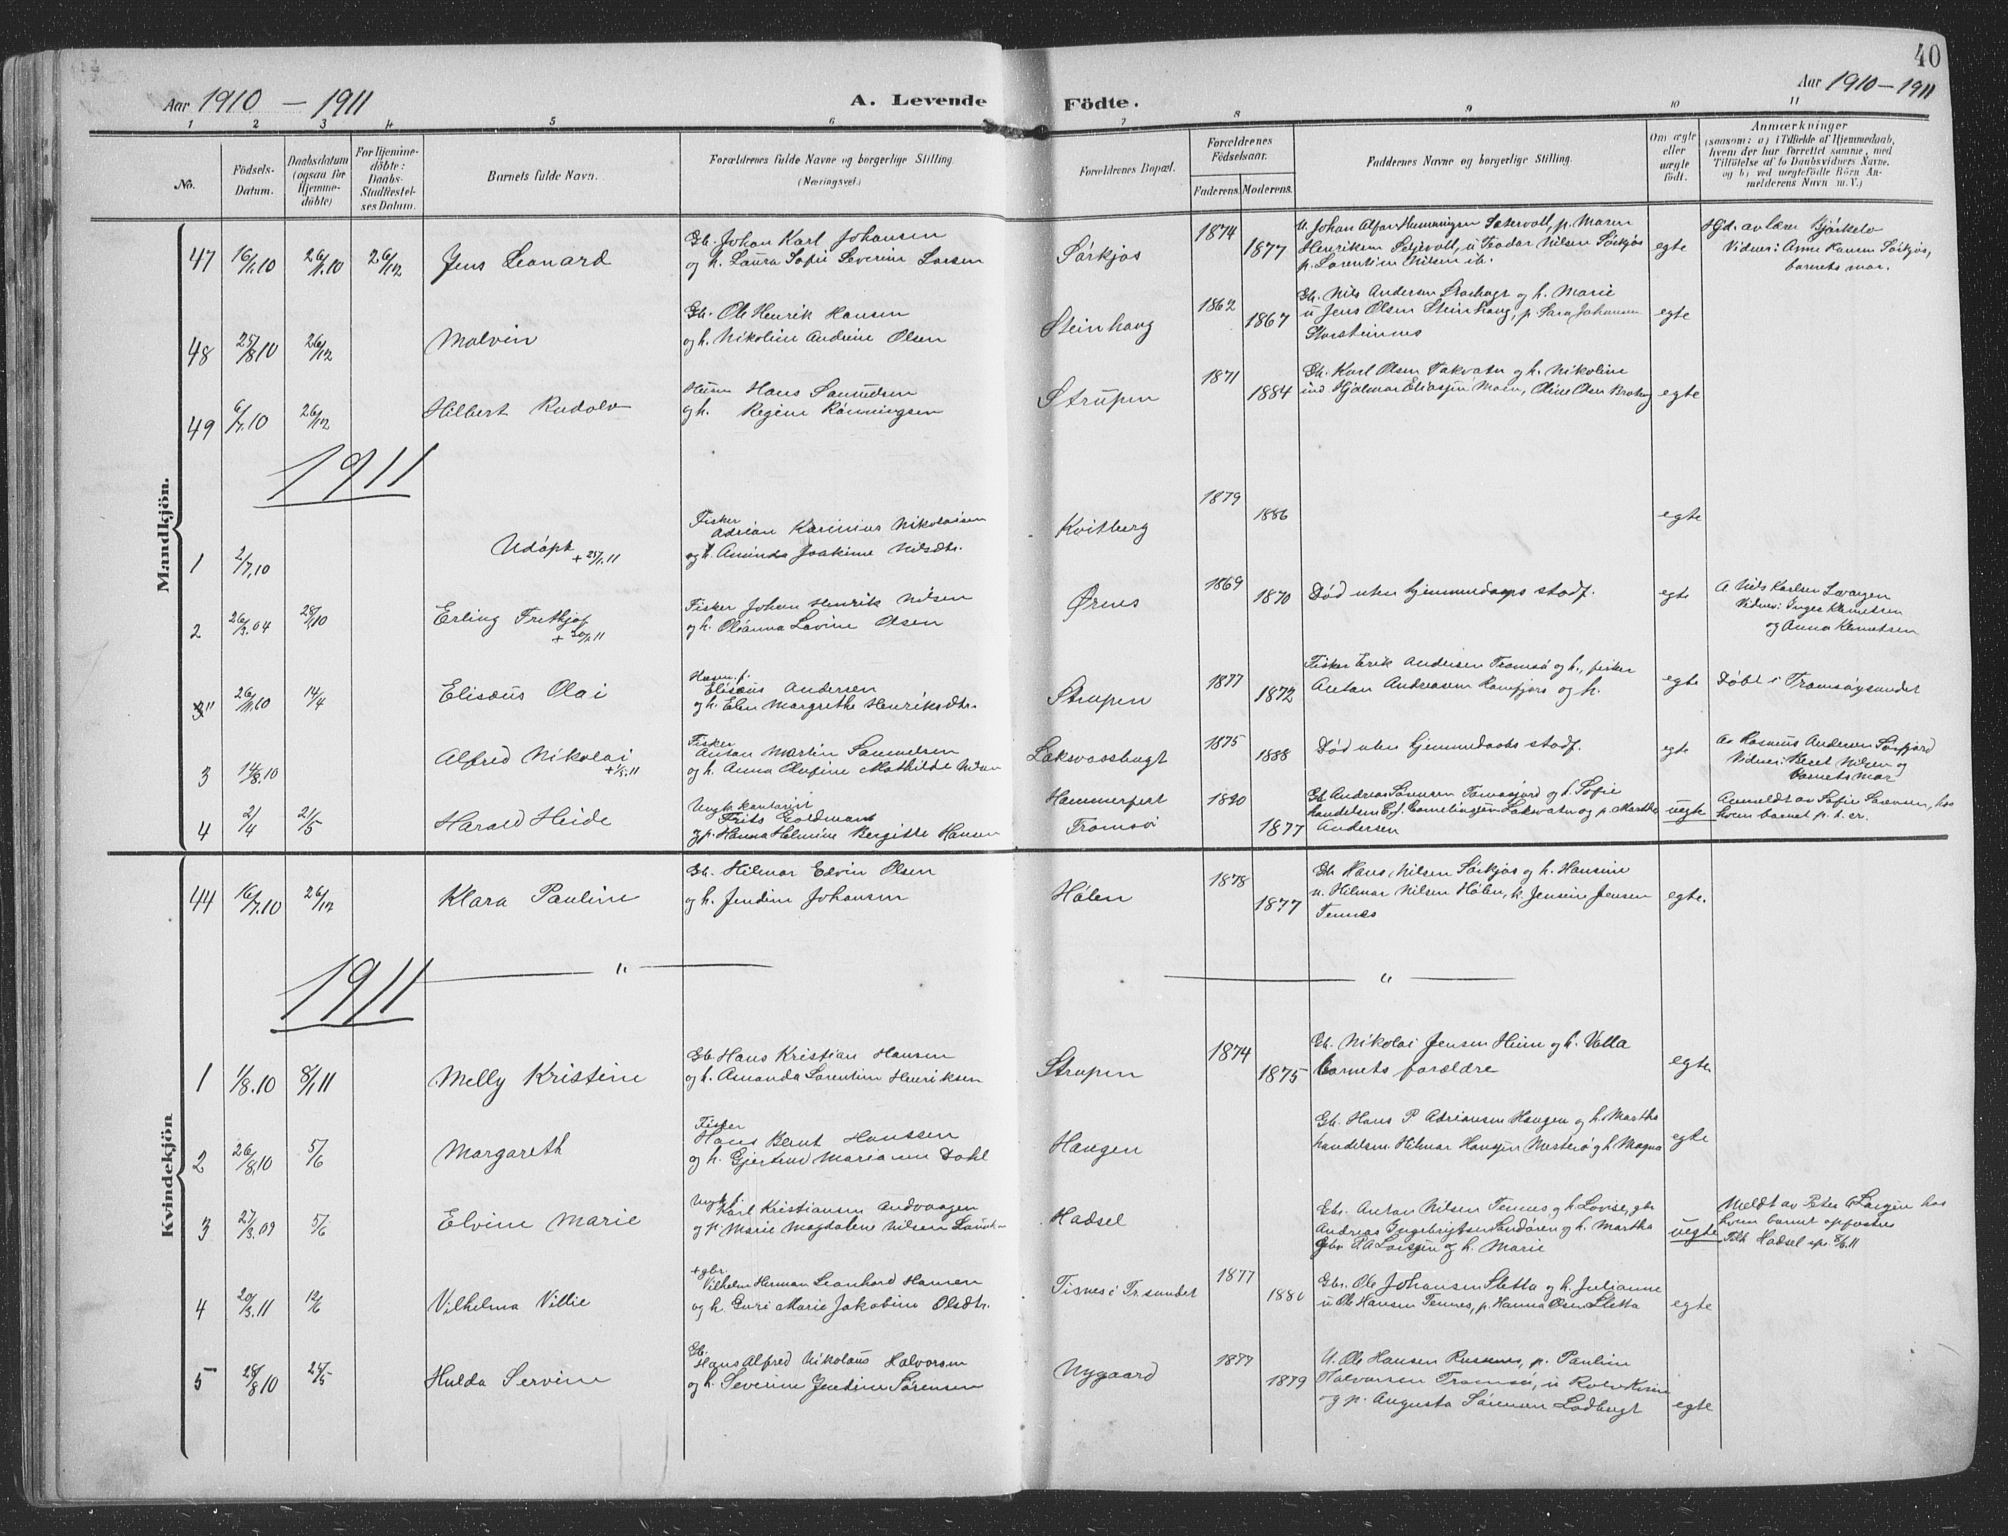 40
Aar 1910 – 1911
A. Levende Födte.
Aar 1910–1911
1 2 3 4 5 6 7 8 9 10 11
No.
Födsels-
Datum.
Daabsdatum
(ogsaa for
Hjemme-
döbte)
For Hjemme-
döbte:
Daabs-
Stadfæstel-
ses Datum.
Barnets fulde Navn.
Forældrenes fulde Navne og borgerlige Stilling.
(Næringsvei.)
Forældrenes Bopæl.
Forældrenes
Födselsaar.
Faderens. Moderens.
Faddernes Navne og borgerlige Stilling.
Om ægte
eller
uægte
födt.
Anmærkninger
(saasom: a) i Tilfælde af Hjemmedaab,
hvem der har forrettet samme, med
Tilföielse af to Daabsvidners Navne.
og b) ved uægtefödte Börn An-
melderens Navn m. V.)
Mandkjön.
47 16/11.10 26/11.10 26/12 Jens Leonard
Gb. Johan Karl Johansen
og h. Laura Sofie Severine Larsen
Sörkjos
1874
1877
u. Johan Alfar Henningsen Sætervoll, p. Maren
Henriksen Setervoll, u Teodar Nilsen Sörkjos
p. Lorentine Nilsen ib.
egte
Hjd. av lærer Bjørkelv
Vidner: Anne Hansen Sörkjos,
barnets mor.
48 25/8.10 26/12 Malvin
Gb. Ole Henrik Hansen
og h. Nikoline Andrine Olsen
Steinhaug
1862
1867
Gb. Nils Andersen og h. Marie
u Jens Olsen Steinhaug, p. Sara Johansen
Storsteinnes
egte
49 6/7.10 26/12 Hilbert Rudolv
Husm Hans Samuelsen
og h. Regine Rönningsen
Strupen
1871
1884
Gb. Karl Olsen Takvatn og h. Nikoline
ind Hjalmar Eliassen Moen, Oline Olsen
egte
1911
1 2/7.10 Udöpt + 25/1.11
Fisker
Adrian Karinius Nikolaisen
og h. Aminda Joakime Nilsdtr.
Kvitberg
1879
1886
egte
2 26/3.04 28/10 Erling Fritkjof
+ 20/1.11
Fisker Johan Henrik Nilsen
og h. Oleanna Lovine Olsen
Ørnes
1869
1870
Död uten hjemmedaaps stadf.
egte
A Nils Karlsen
Vidner: Inger Knutsen
og Anna Knutsen
3 26/11.10 14/4 Elisæus Olai
Husm. f.
Elisæus Andersen
og h. Elen Margrethe Henriksdtr.
Strupen
1877
1872
Fisker Erik Andersen Tromsö og h., fisker
Anton Andreasen Ramfjord og h.
egte
Döbt i Tromsöysundet
3 14/8.10 Alfred Nikolai
+ 1/5.11
Fisker
Anton Martin Samuelsen
og h. Anna Olufine Mathilde Nilsen
Lakvassbugt
1875
1888
Död uten hjemmedaabs stadf.
egte
Av Rasmus Andersen Sörfjord
Vidner: Beret Nilsen og
barnets mor
4 2/4 21/5 Harald Heide
Ungk. kontorist
Frits Goldmann
og p. Hanna Helmine Bergitte Hansen
Hammerfest
Tromsö
1890
1877
Gb Andreas Sörensen Tomasjord og h. Sofie
handelsm Lakvatn og p. Martha
Andersen
uegte
Anmeldt av Sofie Sörensen, hos
hvem barnet p. t. er.
Kvindekjön
44 16/7.10 26/12 Klara Pauline
Gb. Hilmar Edvin Olsen
og h. Jendine Johansen
Hólen
1878
1877
Gb Hans Nilsen Sörkjos og h. Hansine
u. Hilmar Nilsen Hólen, k. Jensine Jensen
Tennes
egte.
1911 — " — — " —
1 1/8.10 8/1.11 Melly Kristine
Gb Hans Kristian Hansen
og h. Amanda Lorentine Henriksen
Strupen
1874
1875
Gb. Nikolai Jensen Heim og h. Valla
barnets forældre
egte
2 26/8.10 5/6 Margareth
Fisker
Hans Bernt Hanssen
og h. Gjertine Mariann Dahl
Haugen
Gb. Hans P. Adriansen Haugen og h. Martha
handelsm. Hilmar Hansen Mesterö og h. Magna
egte
3 27/3.09 5/6 Elvine Marie
Ungk. f.
Karl Kristiansen Andvaagen
og p. Marie Magdalene Nilsen
Hadsel
Gb. Anton Nilsen Tennes og h. Lovise, gbr
Andreas Ingebrigtsen Sandören og h. Martha
Gbr P. A Larssen og h. Marie
uegte
Meldt av Peter A Larsen hos
hvem barnet opfostres
Tilh Hadsel
4 20/3.11 12/6 Vilhelma Villie
+ gbr.
Vilhelm Herman Leonhard Hansen
og h. Guri Marie Jakobine Olsdtr.
Tisnes i Tr.sundet
1877
1880
Gbr. Ole Johansen Sletta og h. Julianne
u Ole Hansen Tennes, p. Hanna Olsen Sletta
egte
5 28/8.10 25/5 Hulda Servine
Gb.
Hans Alfred Nikolaus Halvorsen
og h. Severine Jentine Sörensen
Nygaard
1877
1879
U. Ole Hansen Russenes, p. Pauline
Halvorsen Tromsö, u
og p. Augusta Sörensen Lodbugt
egte